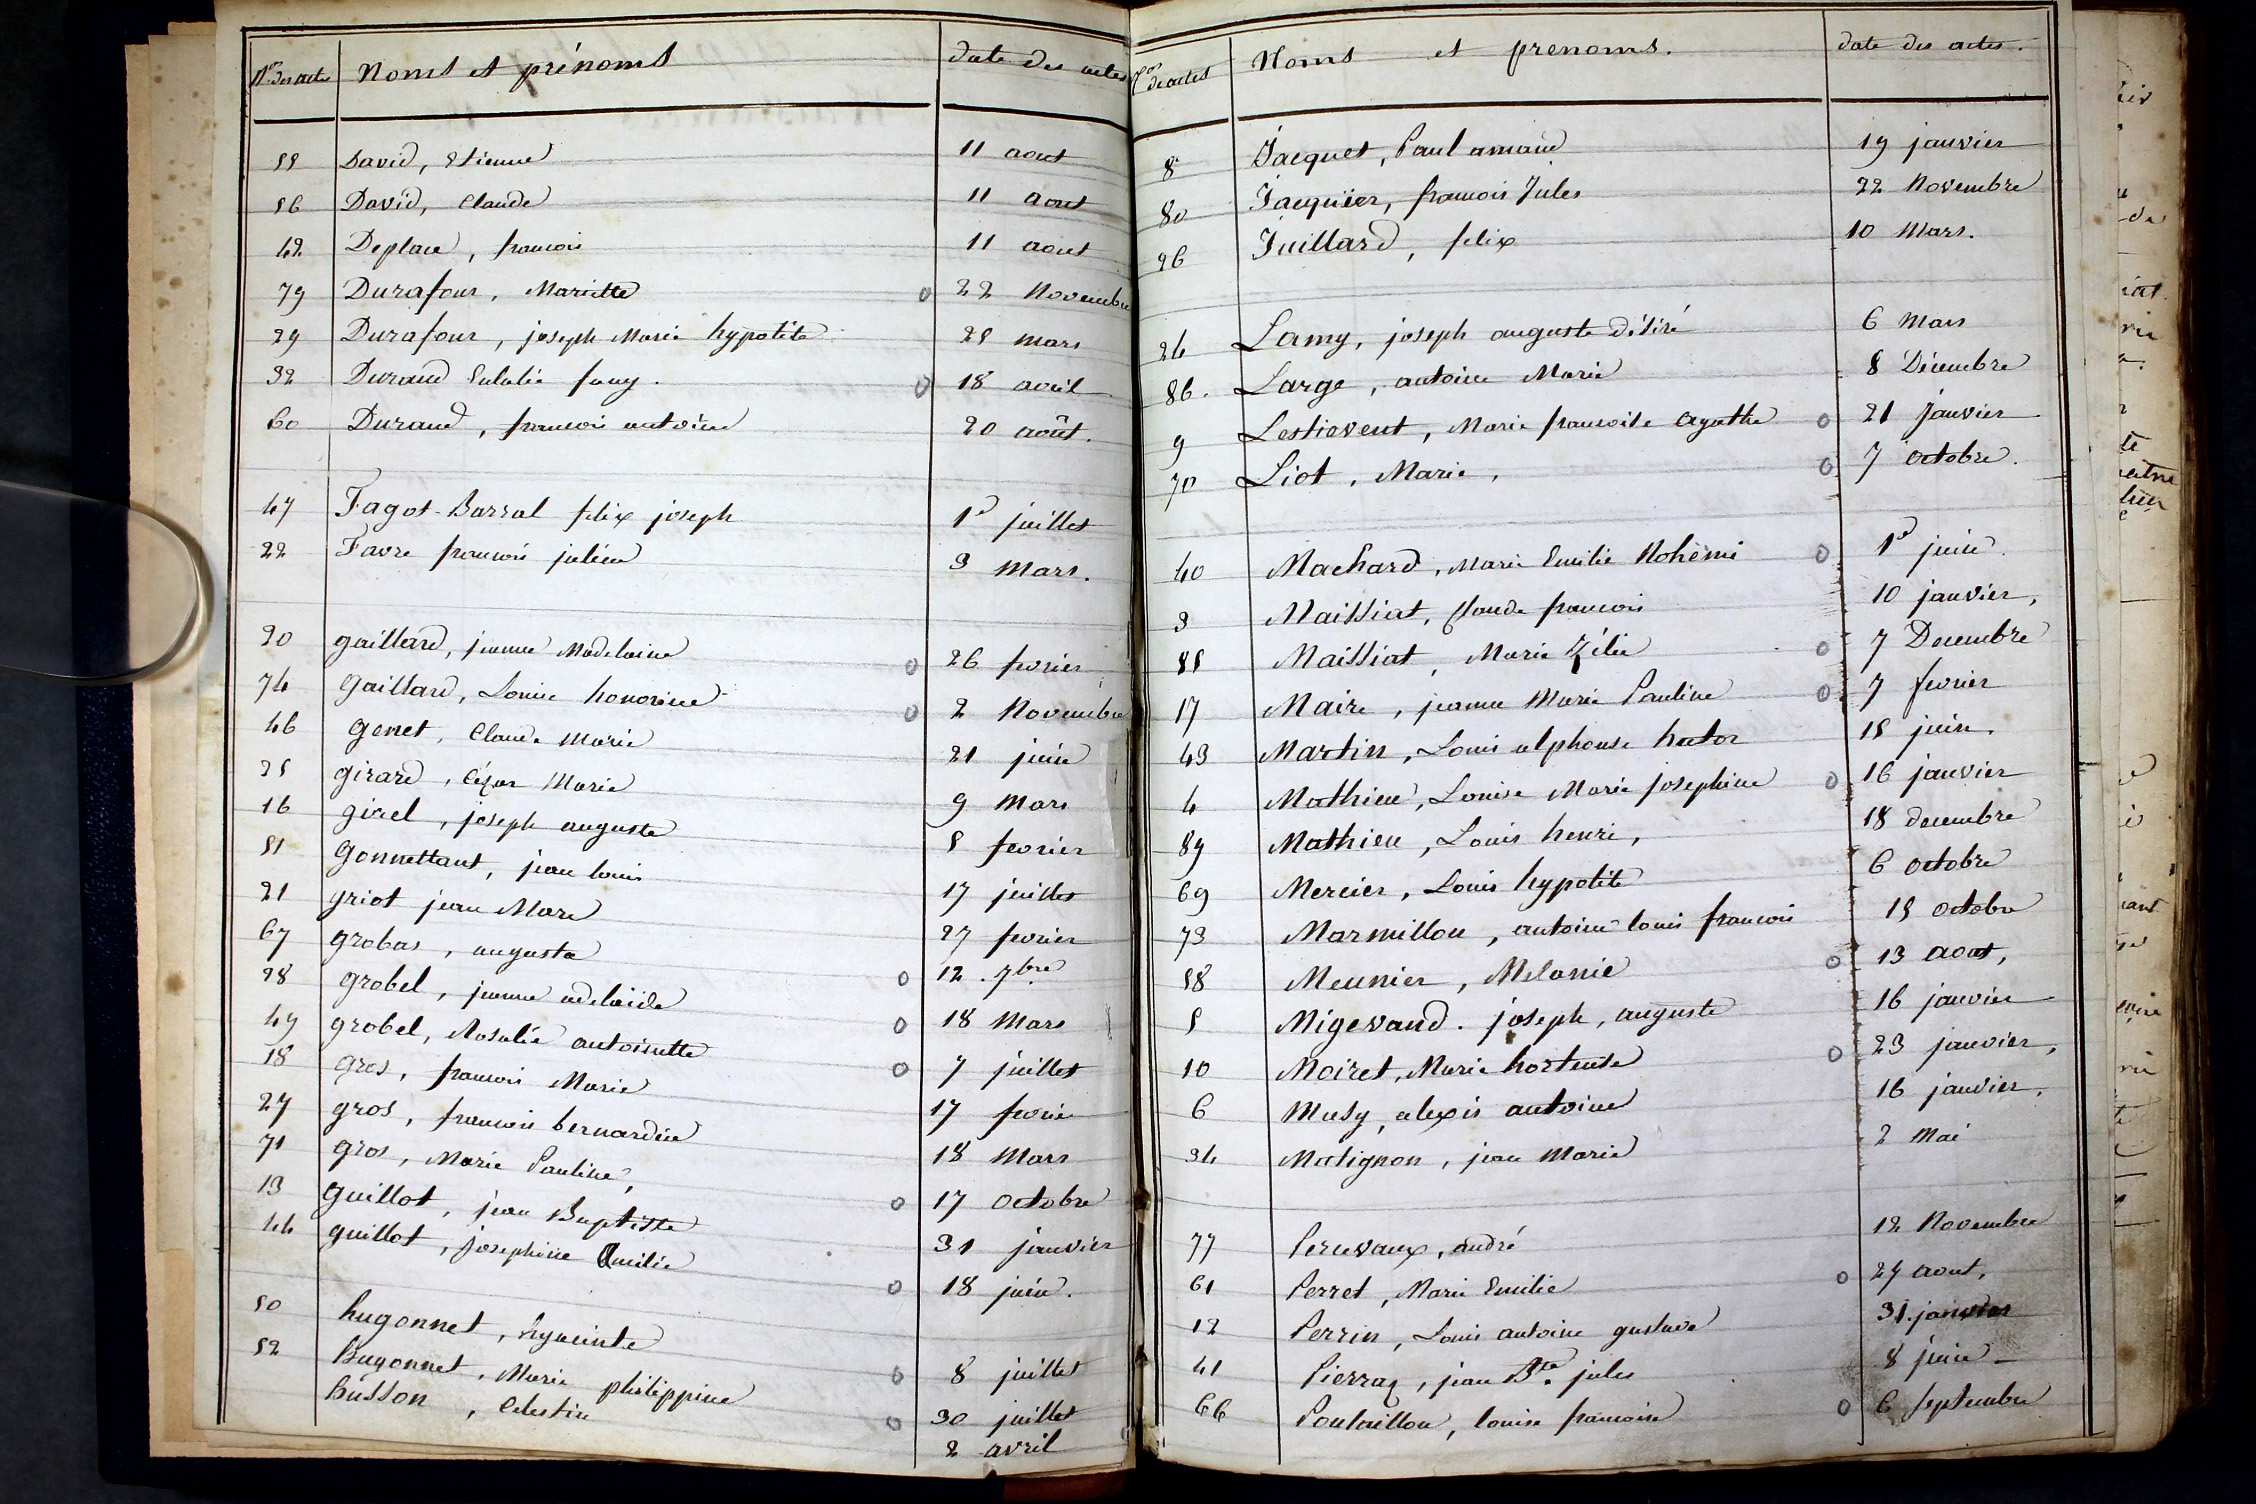 Nos des actes Noms et prénoms date des actes
55 David, Etienne 11 aout
56 David, Claude 11 aout
42 Deplace, francois 11 aout
79 Durafour, Mariette o 22 Novembre
29 Durafour, joseph Marie hypolite 25 mars
32 Durand Eulalie fany. o 18 avril
60 Durand, francois antoine 20 août.
47 Fagot-Barral felix joseph 1er juillet
22 Favre francois julien 3 Mars.
20 gaillard, jeanne Madelaine o 26 fevrier
74 gaillard, Louise honorine o 2 Novembre
46 genet, Claude Marie 21 juin
25 girard, César Marie 9 Mars
16 girel, joseph auguste 5 fevrier
51 gonnettant, jean louis 17 juillet
21 griot jean Marc 27 fevrier
67 grobas, augusta o 12 . 7bre
28 grobel, jeanne adelaïde o 18 Mars
49 grobel, Rosalie antoinette o 7 juillet
18 gros, francois Marie 17 fevrie
27 gros, francois bernardin 18 Mars
71 gros, Marie Pauline, o 17 octobre
13 guillot, jean Baptiste 31 janvier
44 guillot, josephine Emilie o 18 juin.
50 hugonnet, hyacinte 8 juillet
52 hugonnet, Marie philippine o 30 juillet
husson, Celestin 2 avril
Nos de actes Noms et prenoms. date des actes.
8 Jacquet, Paul amand 19 janvier
80 Jacquier, francois Jules 22 Novembre
26 Juillard, felix 10 Mars.
24 Lamy, joseph auguste Désiré 6 Mars
86. Large, antoine Marie 8 Décembre
9 Lestievent, Marie francoise Agathe o 21 janvier
70 Liot, Marie, o 7 octobre.
40 Machard, Marie Emilie Nohémi o 1er juin.
3 Maissiat, Claude francois 10 janvier,
85 Maissiat, Marie Zélie o 7 Decembre
17 Maire, jeanne Marie Pauline o 7 fevrier
43 Martin, Louis alphonse hector 15 juin.
4 Mathieu, Louise Marie josephine o 16 janvier
89 Mathieu, Louis henri, 18 decembre
69 Mercier, Louis hypolite 6 octobre
73 Marmillon, antoine louis francois 15 octobre
58 Meunier, Melanie o 13 aout,
5 Migevand. joseph, auguste 16 janvier
10 Moiret, Marie hortense o 23 janvier,
6 Musy, alexis antoine 16 janvier,
34 Matignon, jean Marie 2 Mai
77 Peruvaux, andré 12 Novembre
61 Perret, Marie Emilie o 27 aout,
12 Perrin, Louis antoine gustave 31 janvier
41 Pierraz, jean Bte. jules 8 juin
66 Poulaillon, louise francoise o 6 septembre